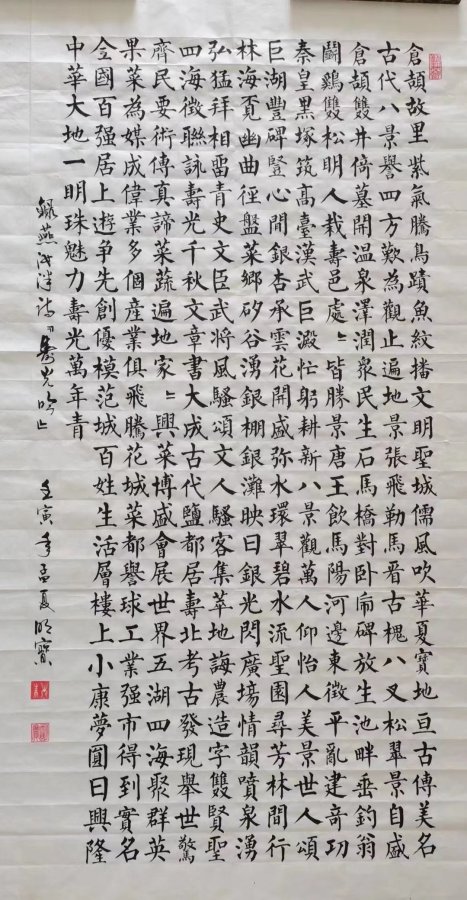 倉頡故里紫氣騰鳥蹟魚紋播文明聖城儒風吹華夏寶地亘古傳美名
古代八景譽四方歎為觀止遍地景張飛勒馬晋古槐八叉松翠景自盛
倉頡雙井倚墓開温泉澤潤衆民生石馬橋對卧帍碑放生池畔垂釣翁
鬭鷄雙松明人栽壽邑處〻皆勝景唐王飲馬陽河邊東徵平亂建奇功
秦皇黑塚筑高臺漢武巨澱忙躬耕新八景觀萬人仰怡人美景世人頌
巨湖豐碑豎心間銀杏承雲花開盛弥水環翠碧水流聖園尋芳林間行
林海覓幽曲徑盤菜鄉矽谷湧銀棚銀灘映日銀光閃廣場情韻噴泉湧
弘猛拜相雷青史文臣武將風騷頌文人騷客集萃地誨農造字雙賢聖
四海徵聯詠壽光千秋文章書大成古代鹽都居壽北考古發現舉世驚
齊民要術傳真諦菜蔬遍地家〻興菜博盛會展世界五湖四海聚群英
果菜為媒成偉業多個産業俱飛騰花城菜都譽球工業强市得到實名
全國百强居上遊争先創優模范城百姓生活層樓上小康夢圓日興隆
中華大地一明珠魅力壽光萬年青
録燕洋诗壽光吟 壬寅年孟夏明寶